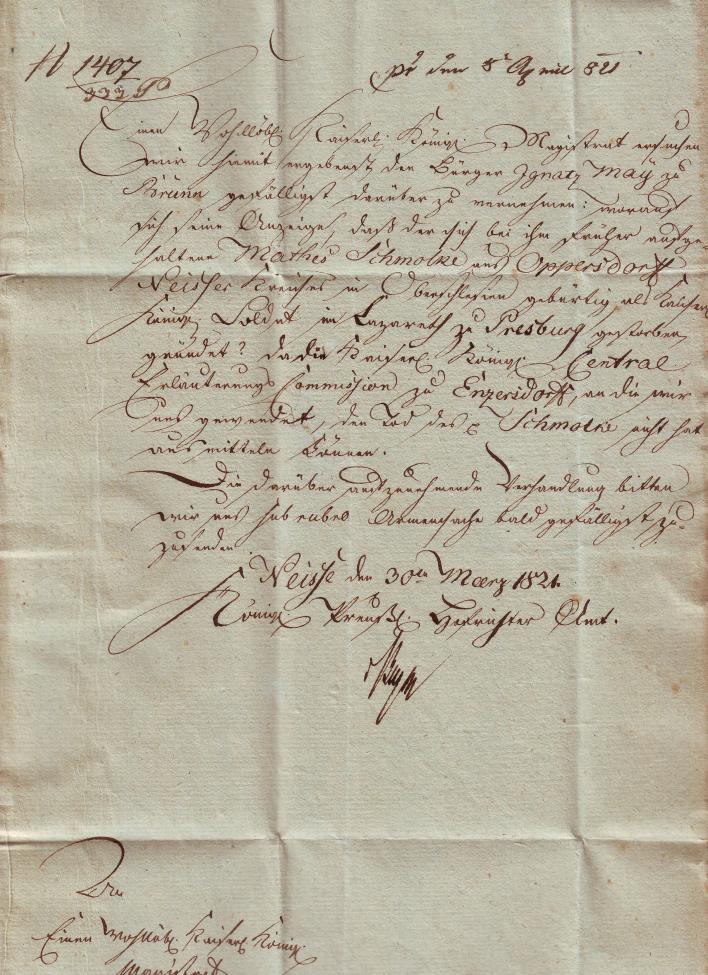 N 1407
pr. den 8t April 821
Einen Wohllöbl. Kaiserl. Königl. Magistrat ersuchen
wir hiemit ergebenst den Bürger Ignatz Maÿ zu
Brünn gefälligst darüber zu vernehmen: worauf
sich seine Anzeige, daß der sich bei ihm früher aufge-
haltene Mathes Schmolke aus Oppersdorff
Neisser Kreises in Oberschlesien gebürtig als Kaiserl.
Königl. Soldat im Lazareth zu Presburg gestorben,
gründet? da die Kaiserl. Königl. Central
Erläuterungs Commission zu Enzersdorff, an die wir
uns gewendet, den Tod des p Schmolke nicht hat
ausmitteln können.
Die darüber aufzunehmende Verhandlung bitten
wir uns sub rubro Armensache bald gefälligst zu-
zusenden.
Neisse den 30ten Maerz 1821.
Königl. Preuß. Hofrichter Amt.
An
Einen Wohllöbl. Kaiserl. Königl.
Magistrat